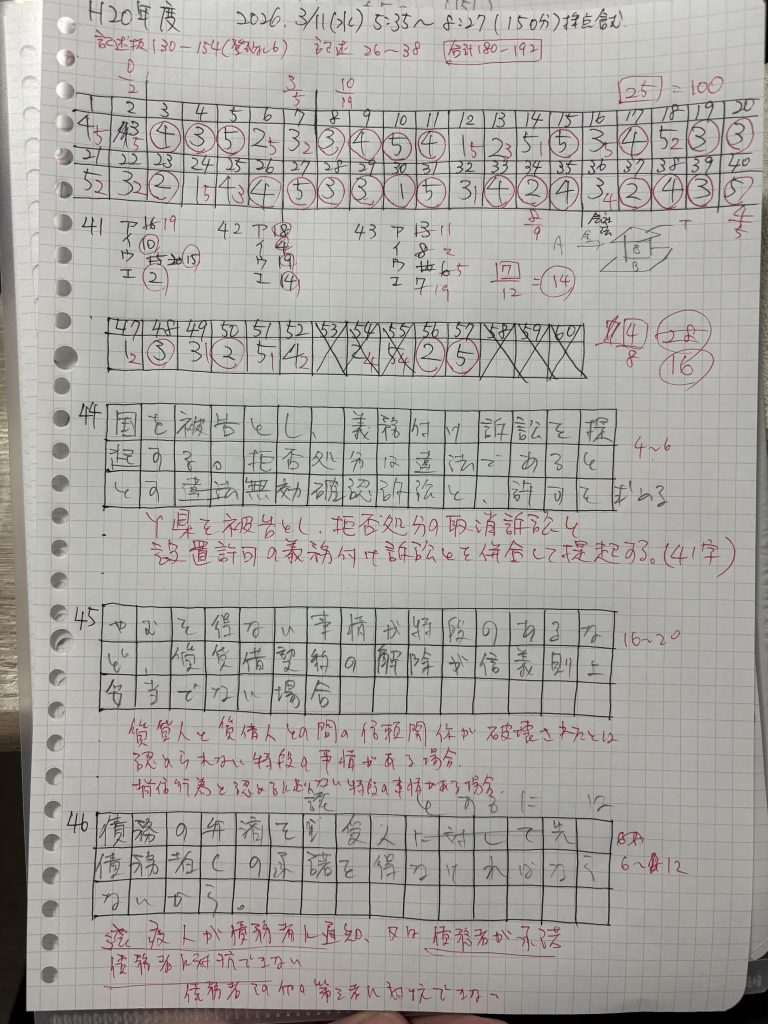 H20年度 2026. 3/11(水) 5:35〜 8:27 (150分) 採点含む
記述抜 130-154 記述 26〜38 合計180-192
0/2 3/5 10/19 25 = 100
1 2 3 4 5 6 7 8 9 10 11 12 13 14 15 16 17 18 19 20
4 5 4 3 5 2 5 3 2 3 4 5 4 1 5 2 3 5 1 5 3 5 4 5 2 3 3
21 22 23 24 25 26 27 28 29 30 31 32 33 34 35 36 37 38 39 40
5 2 3 2 2 1 5 4 3 4 5 3 3 1 5 3 1 4 2 4 3 4 2 4 3 5
8/9 4/5
41 ア 16 19 42 ア 18 43 ア 13 11
イ 10 イ 4 イ 8 2
ウ 15 ウ 19 ウ 6 5
エ 2 エ 14 エ 7 19
7/12 = 14
47 48 49 50 51 52 53 54 55 56 57 58 59 60
1 2 3 3 1 2 5 1 4 2 2 4 5 4 2 5
4/8 28
16
44 国を被告とし、義務付け訴訟を提
起する。拒否処分は違法であると
して違法無効確認訴訟と、許可を求める
4〜6
Y県を被告とし、拒否処分の取消訴訟と
設置許可の義務付け訴訟とを併合して提起する。(41字)
45 やむを得ない事情が特段のあるな
ど、賃貸借契約の解除が信義則上
妥当でない場合
16〜20
賃貸人と賃借人との間の信頼関係が破壊されたとは
認められない特段の事情がある場合.
背信行為と認めるに足りない特段の事情がある場合.
46 債務の弁済を 受人に対して先
債務者との承諾を得なければなら
ないから。
6〜12
譲渡人が債務者に通知、又は債務者が承諾
債務者に対抗できない
債務者その他の第三者に対抗できない